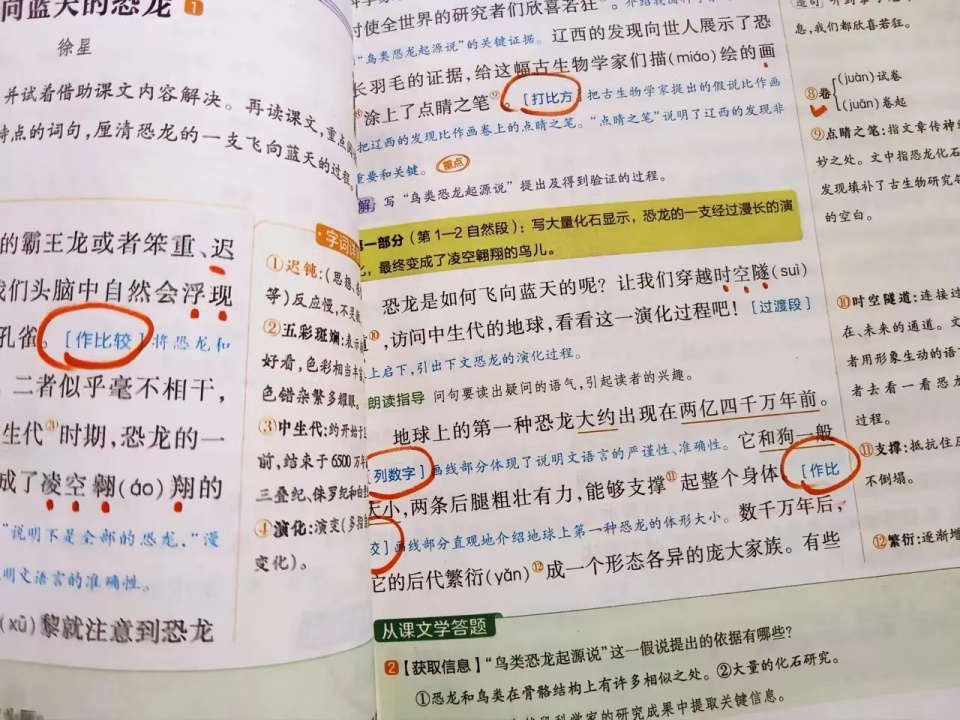 向蓝天的恐龙 1
徐星
并试着借助课文内容解决。再读课文,重点
特点的词句,厘清恐龙的一支飞向蓝天的过程。
的霸王龙或者笨重、迟
我们头脑中自然会浮现
孔雀。[作比较]将恐龙和
。二者似乎毫不相干,
生代③时期,恐龙的一
成了凌空翱(áo)翔的
“说明不是全部的恐龙,”漫
明文语言的准确性。
(xǔ)黎就注意到恐龙
字词
①迟钝:(思想、
等)反应慢,不灵
②五彩斑斓:
好看,色彩相当丰
色错杂繁多耀眼。
③中生代:约开始于
前,结束于6500万
三叠纪、侏罗纪和白
④演化:演变(多
变化)。
时使全世界的研究者们欣喜若狂
“鸟类恐龙起源说”的关键证据。辽西的发现向世人展示了恐
长羽毛的证据,给这幅古生物学家们描(miáo)绘的画
涂上了点睛之笔⑨。[打比方]把古生物学家提出的假说比作画
把辽西的发现比作画卷上的点睛之笔。“点睛之笔”说明了辽西的发现非
重要和关键。重点
解 写“鸟类恐龙起源说”提出及得到验证的过程。
第一部分(第1—2自然段):写大量化石显示,恐龙的一支经过漫长的演
化,最终变成了凌空翱翔的鸟儿。
恐龙是如何飞向蓝天的呢?让我们穿越时空隧(suì)
⑩,访问中生代的地球,看看这一演化过程吧![过渡段]
上启下,引出下文恐龙的演化过程。
朗读指导 问句要读出疑问的语气,引起读者的兴趣。
地球上的第一种恐龙大约出现在两亿四千万年前。
列数字]画线部分体现了说明文语言的严谨性、准确性。它和狗一般
大小,两条后腿粗壮有力,能够支撑⑪起整个身体[作比
较]画线部分直观地介绍地球上第一种恐龙的体形大小。数千万年后,
它的后代繁衍(yǎn)⑫成一个形态各异的庞大家族。有些
从课文学答题
2【获取信息】“鸟类恐龙起源说”这一假说提出的依据有哪些?
①恐龙和鸟类在骨骼结构上有许多相似之处。②大量的化石研究。
科学家的研究成果中提取关键信息。
息,我们都欣喜若狂。
⑧卷 (juàn)试卷
(juǎn)卷起
⑨点睛之笔:指文章传神
妙之处。文中指恐龙化石
发现填补了古生物研究
的空白。
⑩时空隧道:连接过
在、未来的通道。文
者用形象生动的语
者去看一看恐龙
过程。
⑪支撑:抵抗住
不倒塌。
⑫繁衍:逐渐增